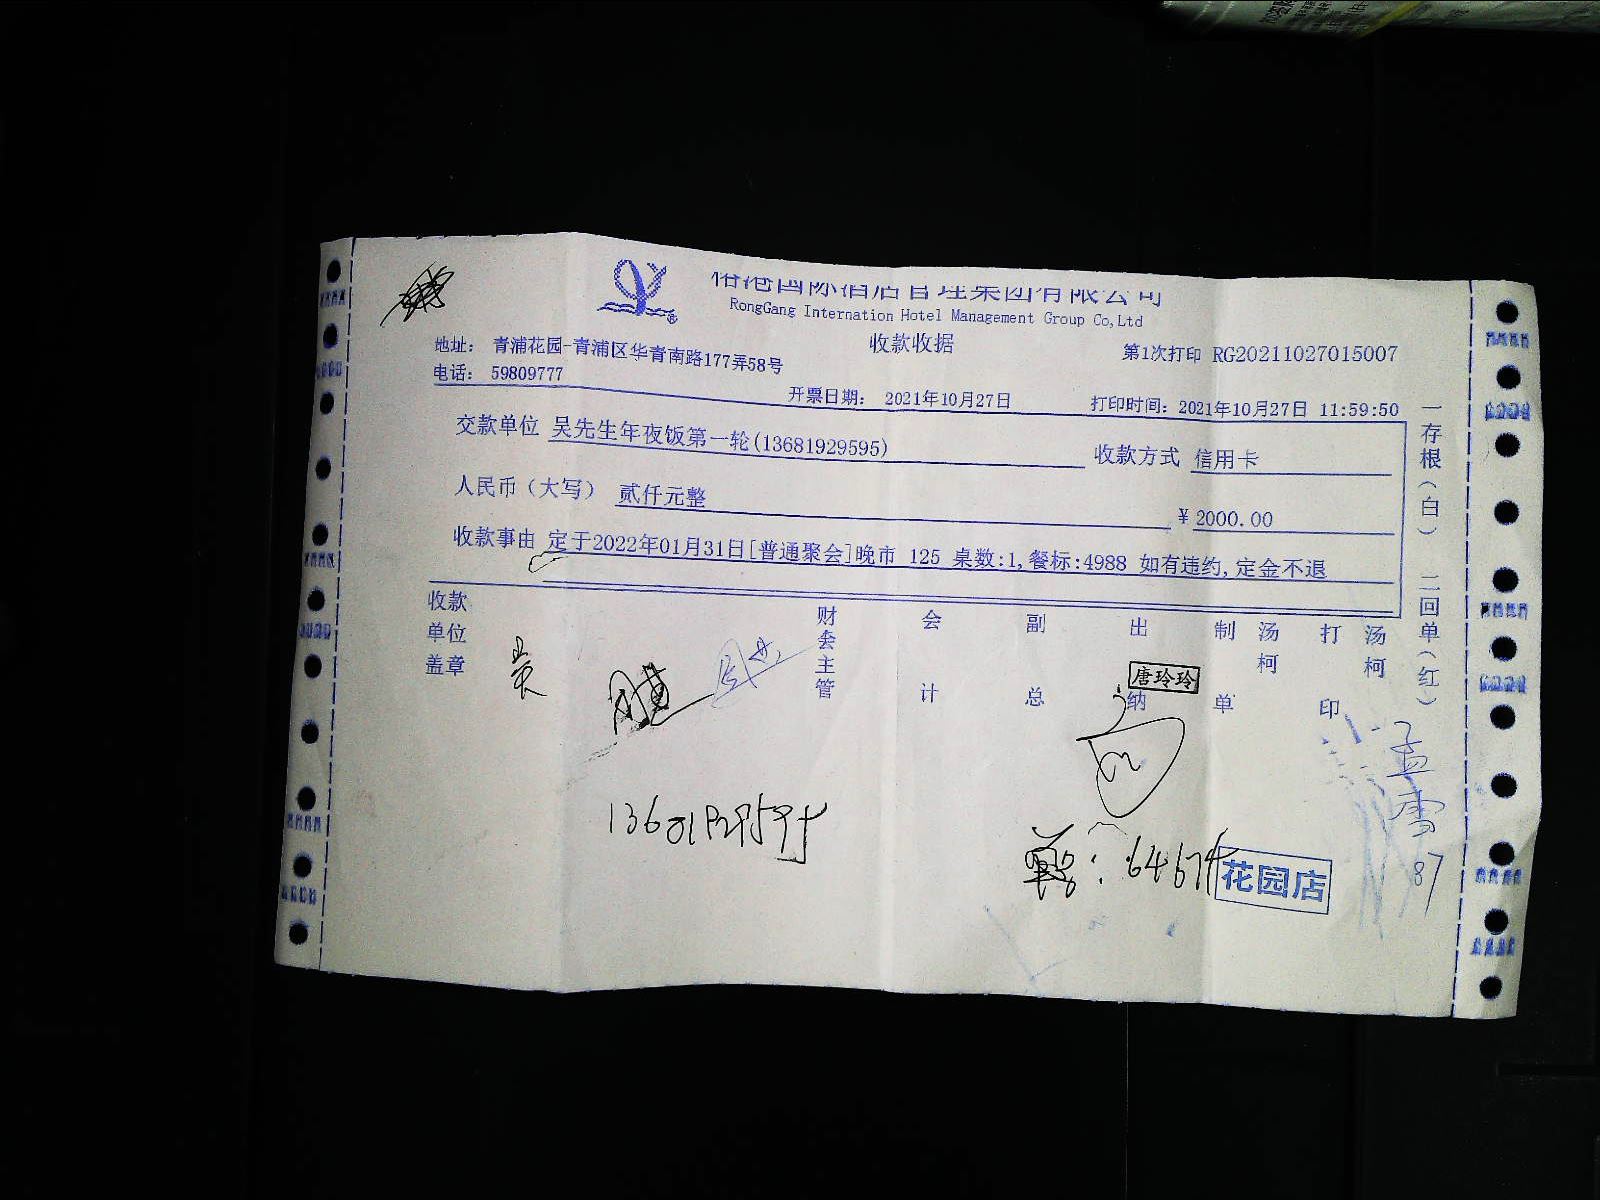 港国际酒店管理集团有限公司
RongGang Internation Hotel Management Group Co,Ltd
收款收据
地址： 青浦花园-青浦区华青南路177弄58号
第1次打印 RG20211027015007
电话： 59809777
开票日期： 2021年10月27日
打印时间：2021年10月27日 11:59:50
交款单位 吴先生年夜饭第一轮(13681929595)
收款方式 信用卡
人民币（大写） 贰仟元整
￥2000.00
收款事由 定于2022年01月31日[普通聚会]晚市 125 桌数:1,餐标:4988 如有违约,定金不退
一存根（白） 二回单（红）
收款单位盖章
财会主管
会计
副总
出纳
唐玲玲
制单
汤柯
打印
汤柯
吴
孟雪
87
花园店